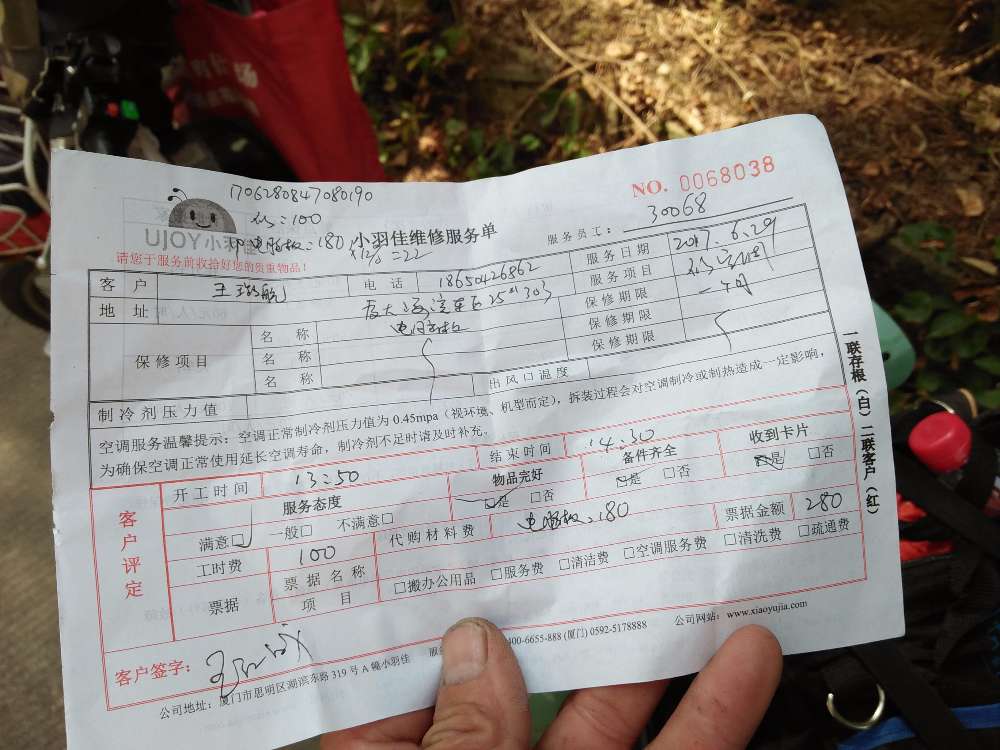 1706280847080190
NO. 0068038
100
UJOY小羽佳
电脑板：180
小羽佳维修服务单
服务员工：30068
请您于服务前收拾好您的贵重物品！
客户 电话 18650426862 服务日期 2017.6.29
地址 服务项目
保修项目 名称 保修期限 一个月
名称 保修期限
名称 保修期限
制冷剂压力值 出风口温度
空调服务温馨提示：空调正常制冷剂压力值为 0.45mpa（视环境、机型而定），拆装过程会对空调制冷或制热造成一定影响，
为确保空调正常使用延长空调寿命，制冷剂不足时请及时补充。
开工时间 13:50 结束时间 14:30
客户评定
服务态度 物品完好 备件齐全 收到卡片
满意□ 一般□ 不满意□ □是 □否 □是 □否 □是 □否
票据 工时费 100 代购材料费 电脑板：180 票据金额 280
票据名称 项目 □搬办公用品 □服务费 □清洁费 □空调服务费 □清洗费 □疏通费
客户签字：
公司地址：厦门市思明区湖滨东路 319 号 A 幢小羽佳 400-6655-888 (厦门) 0592-5178888 公司网站：www.xiaoyujia.com
一联存根（白）二联客户（红）